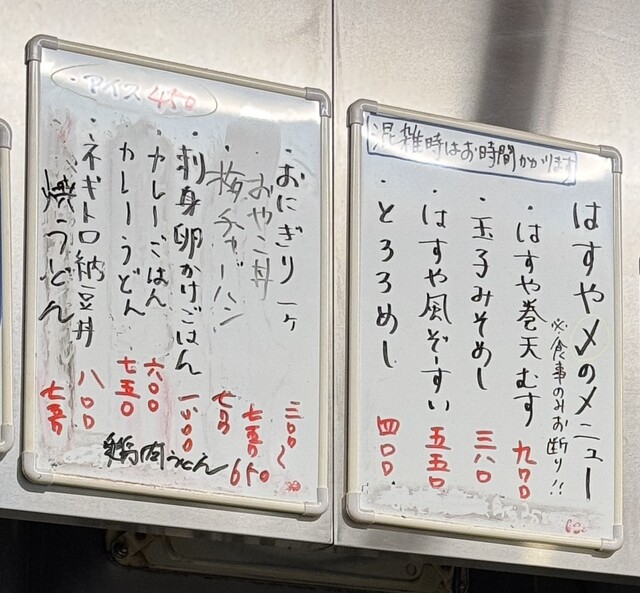 アイス 450
・おにぎり 一ヶ 三〇〇〜
おやこ丼 七五〇
・梅チャーハン
・刺身卵かけごはん
・カレーごはん 六〇〇
カレーうどん 七五〇
・ネギトロ納豆丼 八〇〇
焼うどん 七五〇
鶏肉うどん 650
混雑時はお時間かかります
はすや〆のメニュー
※食事のみお断り!!
・はすや巻天むす 九七〇
・玉子みそめし 三八〇
・はすや風ぞーすい 五五〇
・とろろめし 四〇〇